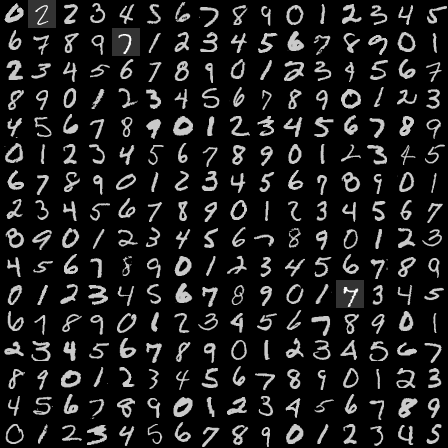 0 2 2 3 4 5 6 7 8 9 0 1 2 3 4 5
6 7 8 9 7 1 2 3 4 5 6 7 8 9 0 1
2 3 4 5 6 7 8 9 0 1 2 3 4 5 6 7
8 9 0 1 2 3 4 5 6 7 8 9 0 1 2 3
4 5 6 7 8 9 0 1 2 3 4 5 6 7 8 9
0 1 2 3 4 5 6 7 8 9 0 1 2 3 4 5
6 7 8 9 0 1 2 3 4 5 6 7 8 9 0 1
2 3 4 5 6 7 8 9 0 1 2 3 4 5 6 7
8 9 0 1 2 3 4 5 6 7 8 9 0 1 2 3
4 5 6 7 8 9 0 1 2 3 4 5 6 7 8 9
0 1 2 3 4 5 6 7 8 9 0 1 7 3 4 5
6 7 8 9 0 1 2 3 4 5 6 7 8 9 0 1
2 3 4 5 6 7 8 9 0 1 2 3 4 5 6 7
8 9 0 1 2 3 4 5 6 7 8 9 0 1 2 3
4 5 6 7 8 9 0 1 2 3 4 5 6 7 8 9
0 1 2 3 4 5 6 7 8 9 0 1 2 3 4 5